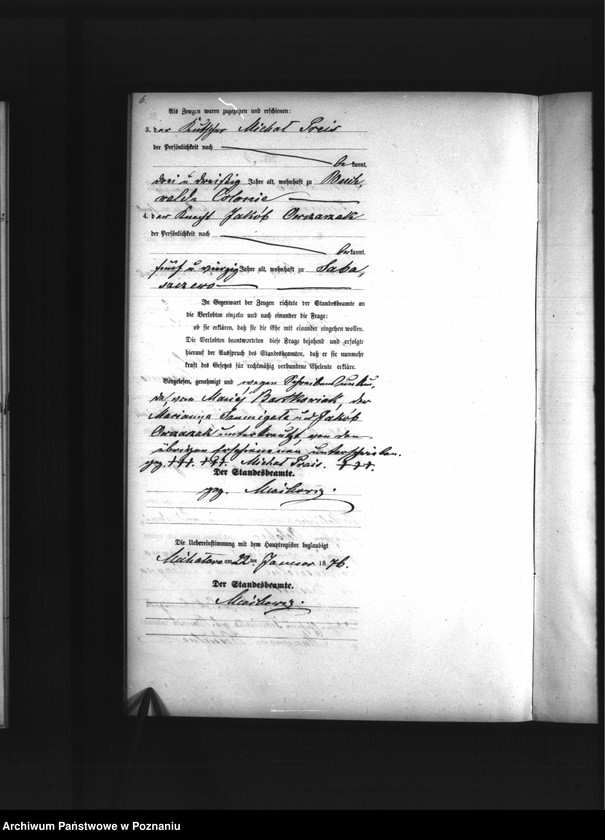 6.
Als Zeugen waren zugezogen und erschienen:
3. der Kutscher Michal Preis
der Persönlichkeit nach
be kannt,
drei u dreißig Jahre alt, wohnhaft zu Buch,
walde Colonie
4. der Knecht Jakób Owczarzak
der Persönlichkeit nach
be kannt,
fünf u vierzig Jahre alt, wohnhaft zu
In Gegenwart der Zeugen richtete der Standesbeamte an
die Verlobten einzeln und nach einander die Frage:
ob sie erklären, daß sie die Ehe mit einander eingehen wollen.
Die Verlobten beantworteten diese Frage bejahend und erfolgte
hierauf der Ausspruch des Standesbeamten, daß er sie nunmehr
kraft des Gesetzes für rechtmäßig verbundene Eheleute erkläre.
Vorgelesen, genehmigt und wegen Schreibensunkun,
de, von Maciej Bartkowiak, der
Marianna und Jakób
Owczarzak unterkreuzt, von den
übrigen erschienenen unterschrieben.
gez. +++. +++. Michal Preis. +++.
Der Standesbeamte.
gez.
Die Uebereinstimmung mit dem Hauptregister beglaubigt
am 22 ten Januar 18 76.
Der Standesbeamte.
Archiwum Państwowe w Poznaniu